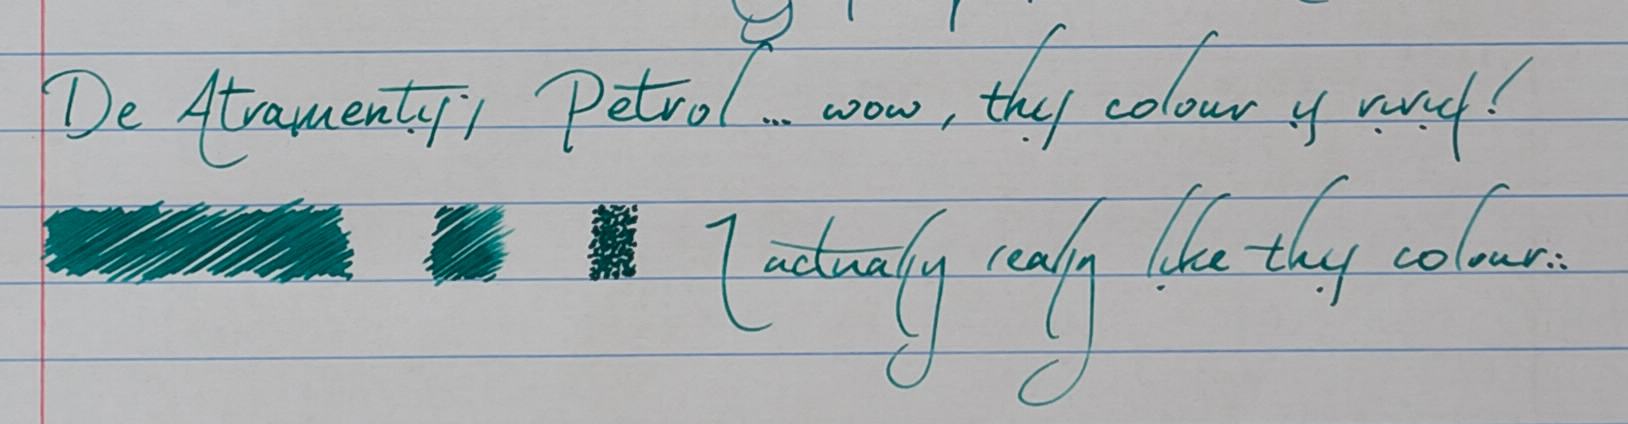 De Atramentis, Petrol... wow, this colour is vivid!
I actually really like this colour...